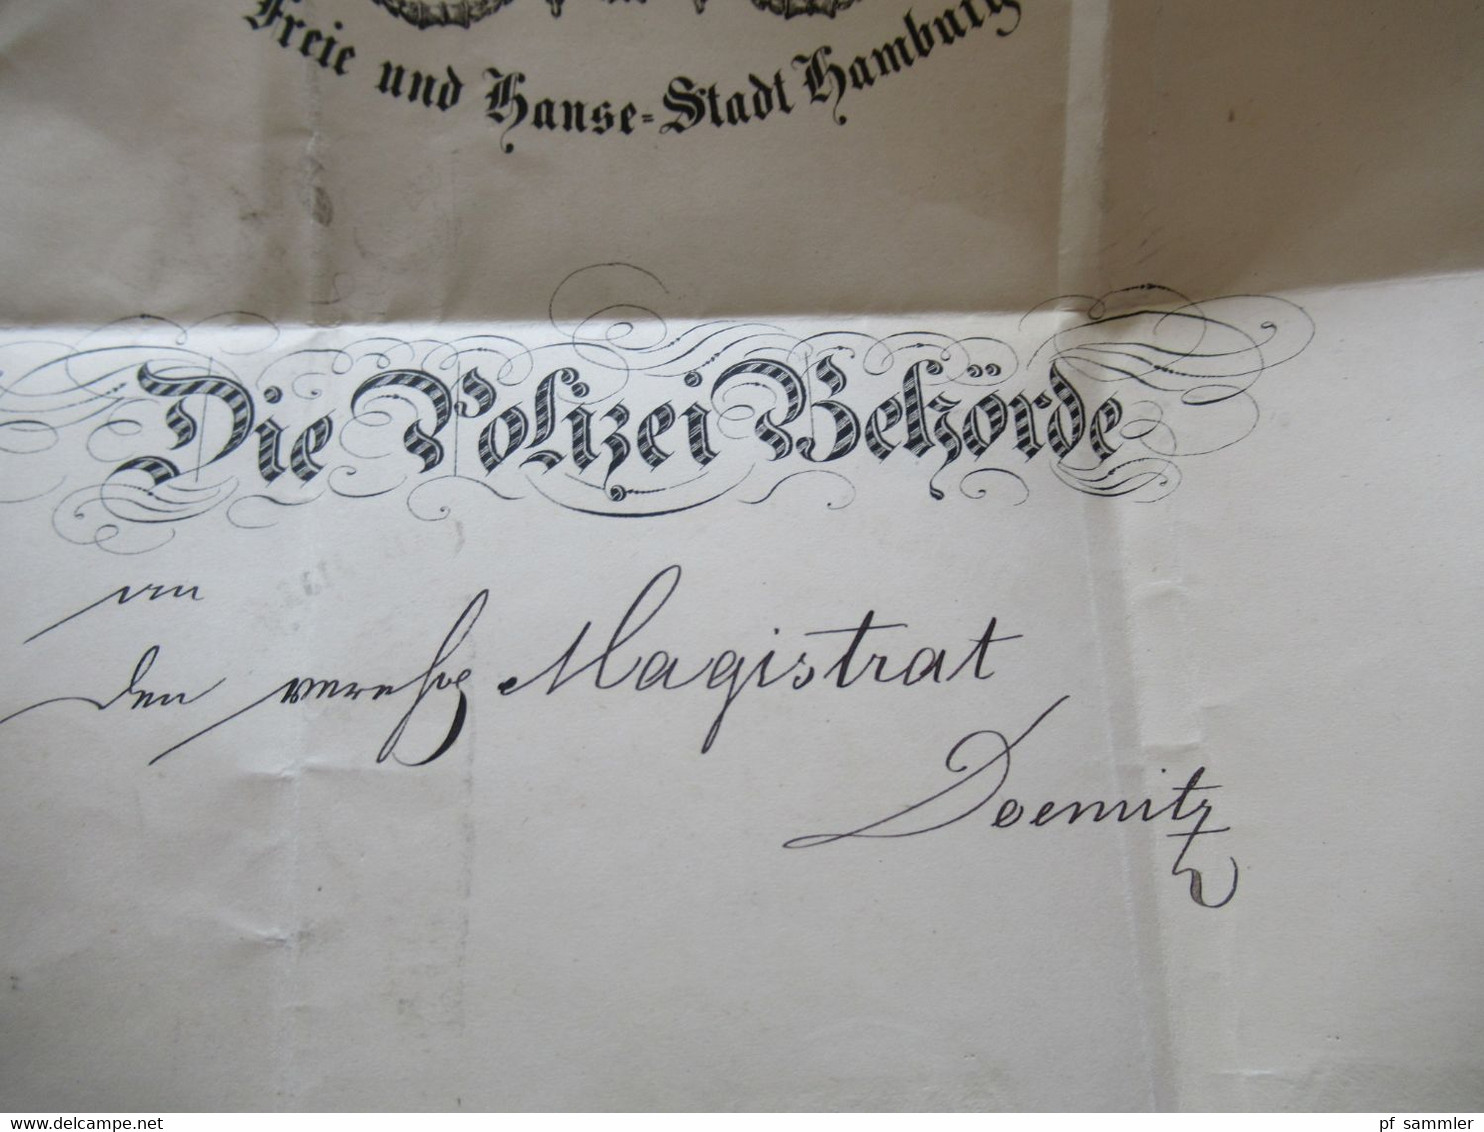 Freie und Hanse=Stadt Hamburg
Die Polizei Behörde
an
den verehl Magistrat
Doemitz
www.delcampe.net
pf_sammler